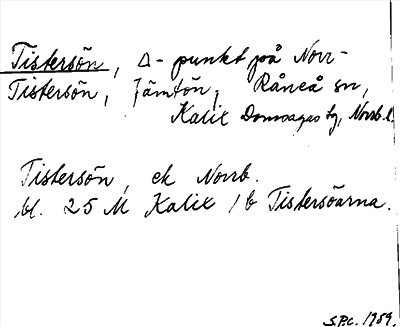 Tistersön, Δ-punkt på Norr-
Tistersön, Jämtön, Råneå sn,
Kalix Domsagas tg, Norrb. l.
Tistersön, ek Norrb.
bl. 25 M Kalix / b Tistersöarna.
S.P.C. 1989.